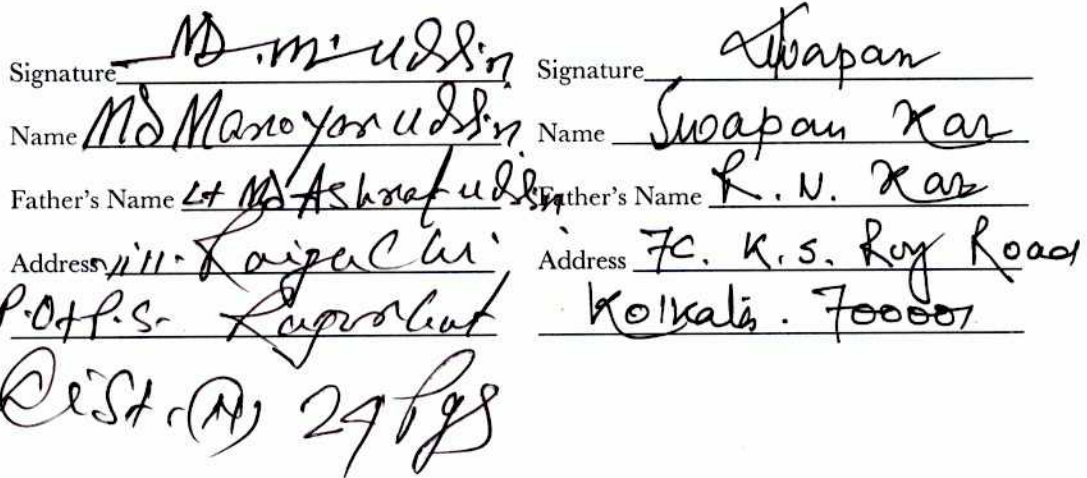 Signature MD. M. Uddin
Name Md Manoyar Uddin
Father's Name Lt Md Ashraf Uddin
Address vill. Raigachi
P.O+P.S. Rajarhat
Dist. (N) 24 Pgs
Signature Swapan
Name Swapan Kar
Father's Name R. N. Kar
Address 7C. K. S. Roy Road
Kolkata. 700001